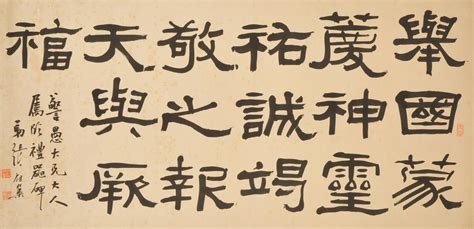 舉國蒙
慶神靈
祐誠竭
敬之報
天與厥
福
愚大兄大人
屬臨禮器碑
弟張